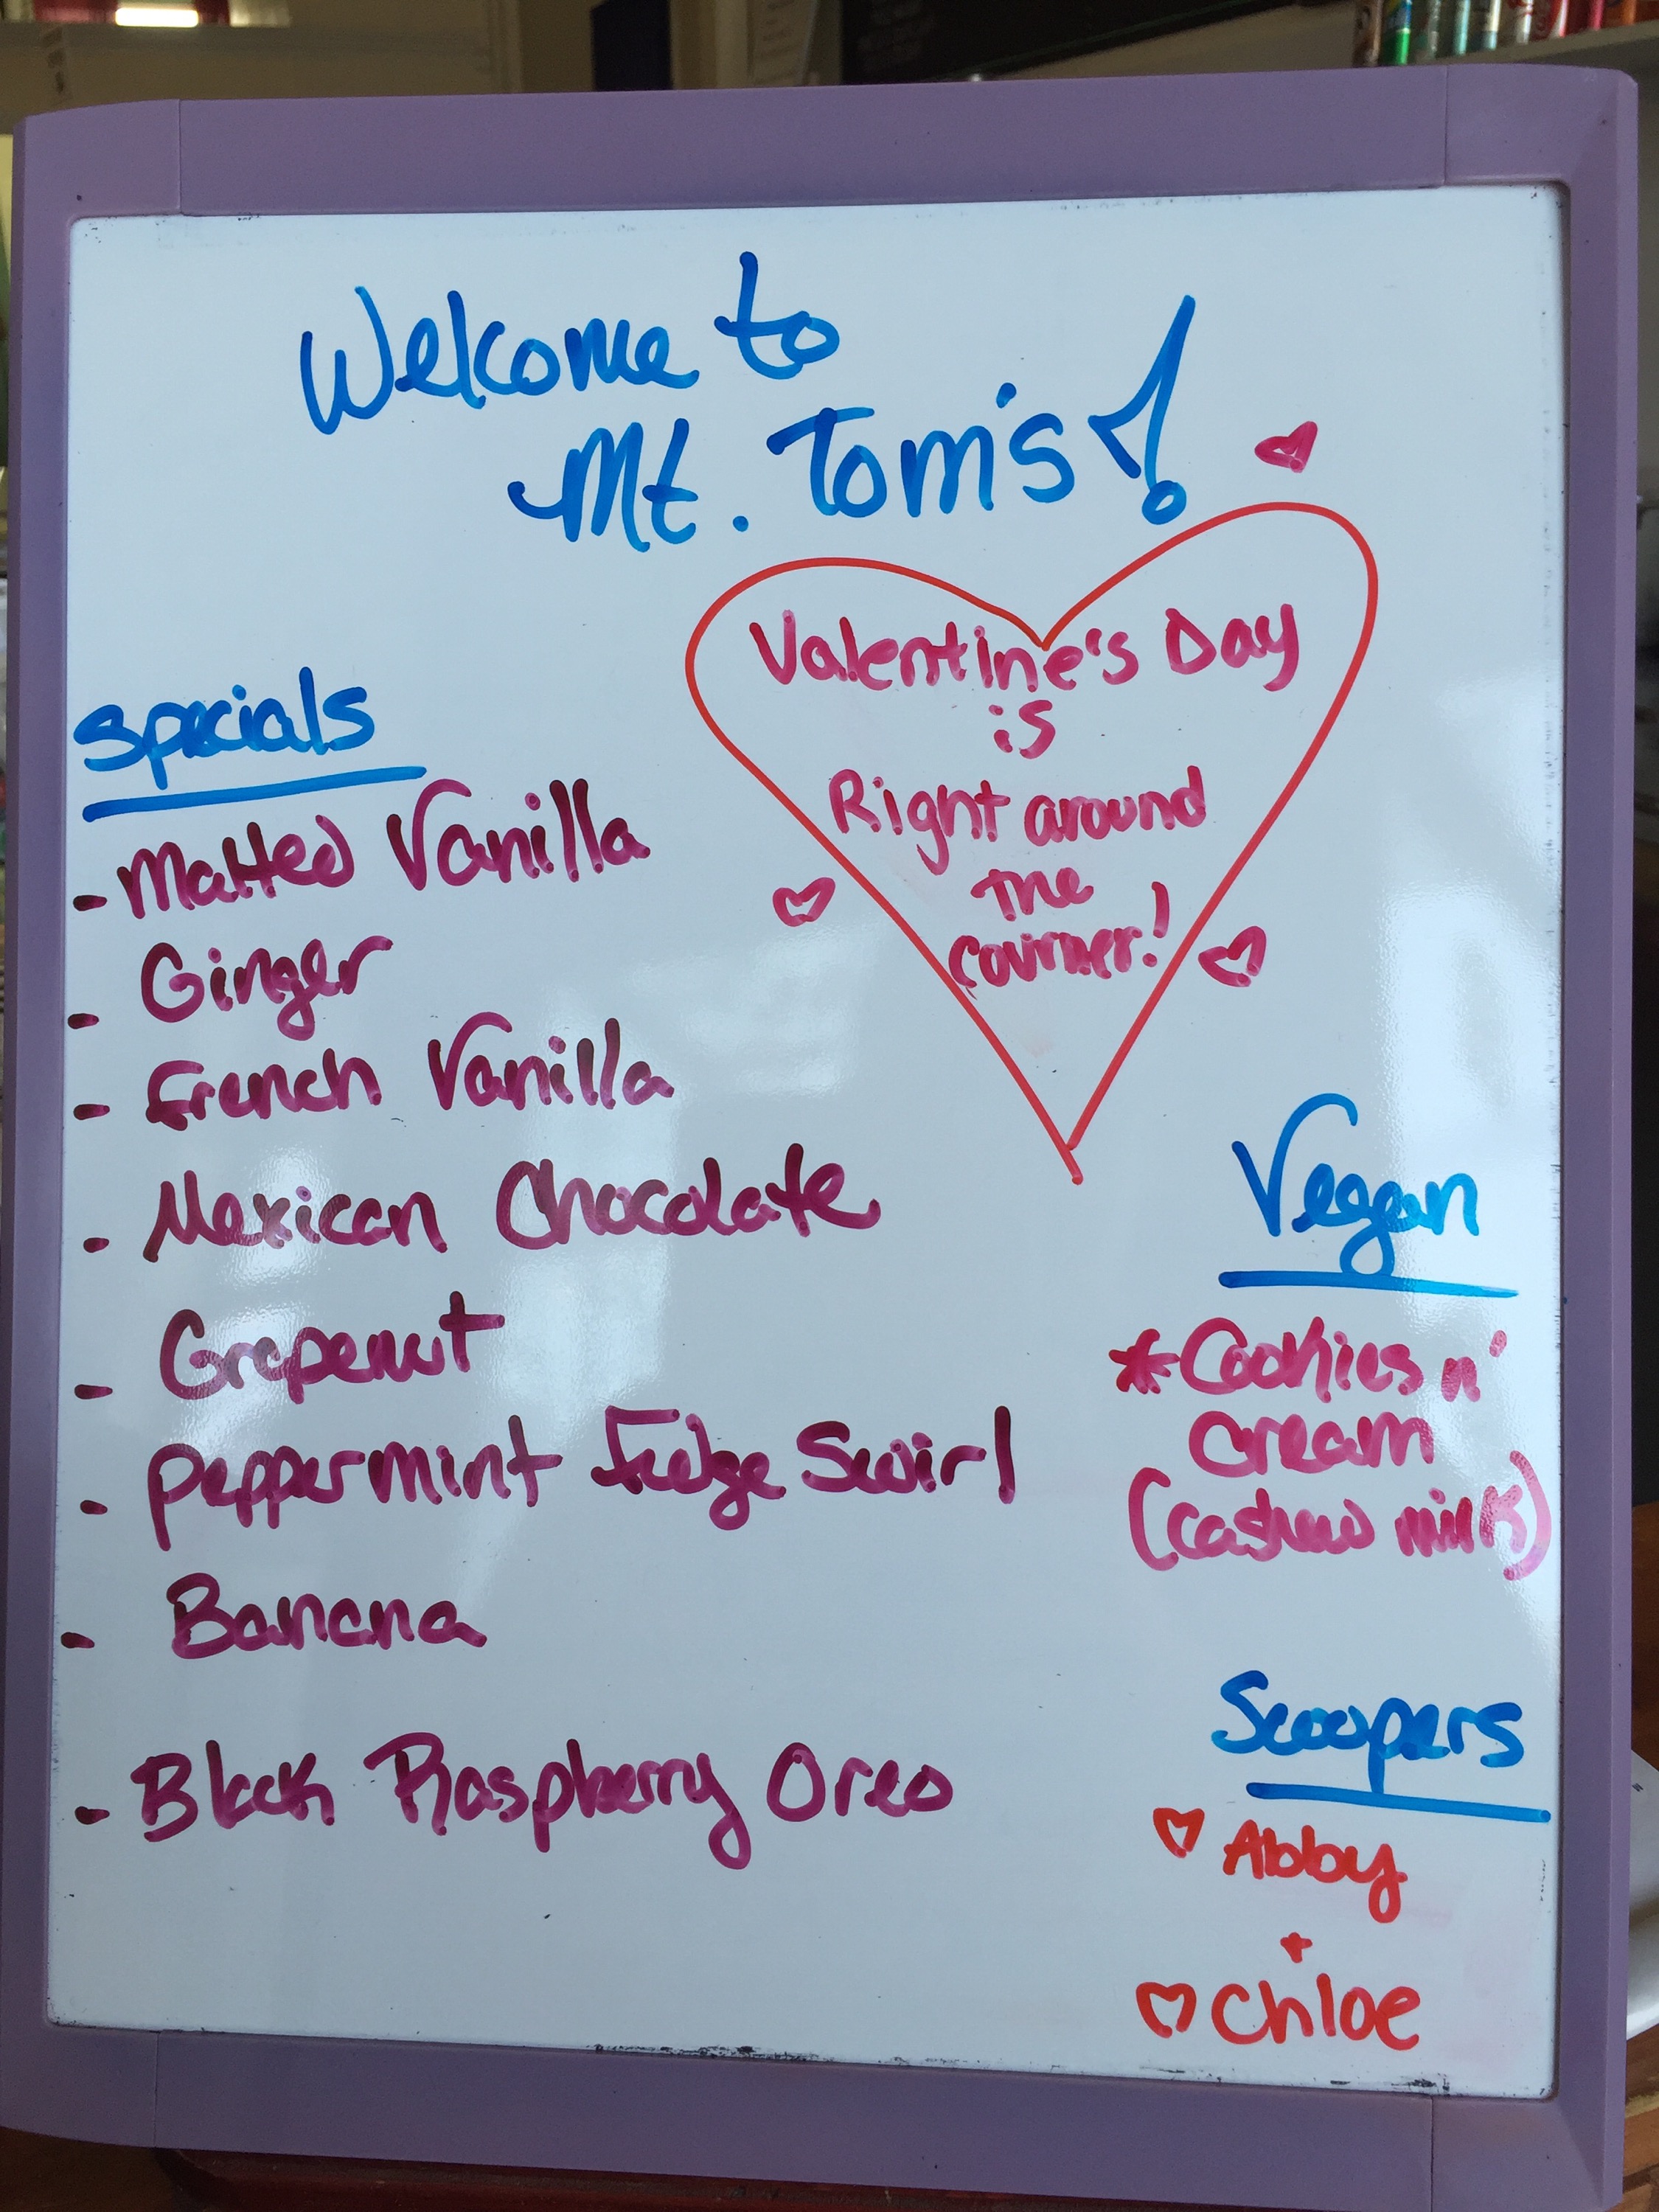 Welcome to
Mt. Tom's!
Valentine's Day
is
Right around
the
courner!
Specials
- Malted Vanilla
- Ginger
- French Vanilla
- Mexican Chocolate
- Grapenut
- Peppermint Fudge Swirl
- Banana
- Black Raspberry Oreo
Vegan
*Cookies n'
Cream
(cashew milk)
Scoopers
♡ Abby
+
♡ Chloe